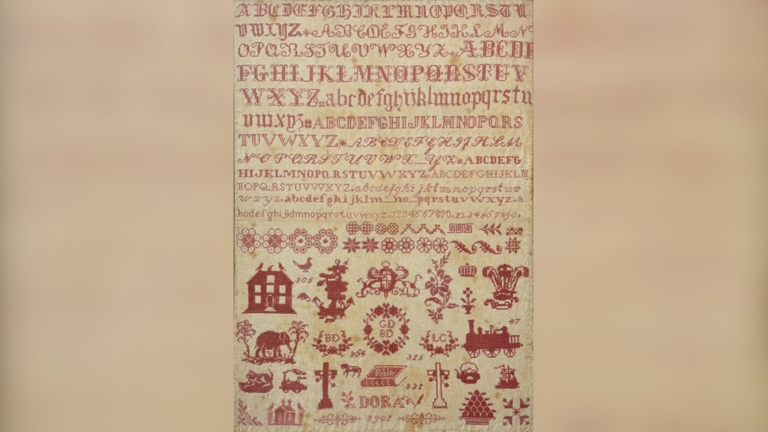 ABCDEFGHIJKLMNOPQRSTU
VWXYZ ABCDEFGHIJKLMN
OPQRSTUVWXYZ ABCDE
FGHIJKLMNOPQRSTUV
WXYZ abcdefghijklmnopqrstu
vwxyz ABCDEFGHIJKLMNOPQRS
TUVWXYZ ABCDEFGHIJKLM
NOPQRSTUVWXYZ ABCDEFG
HIJKLMNOPQRSTUVWXYZ ABCDEFGHIJKLM
NOPQRSTUVWXYZ abcdefghijklmnopqrstuv
wxyz abcdefghijklmnopqrstuvwxyz a
bcdefghijklmnopqrstuvwxyz 1234567890 1234567890
305
47
CD
BD
BD
LC
325
Bible
331
DORA